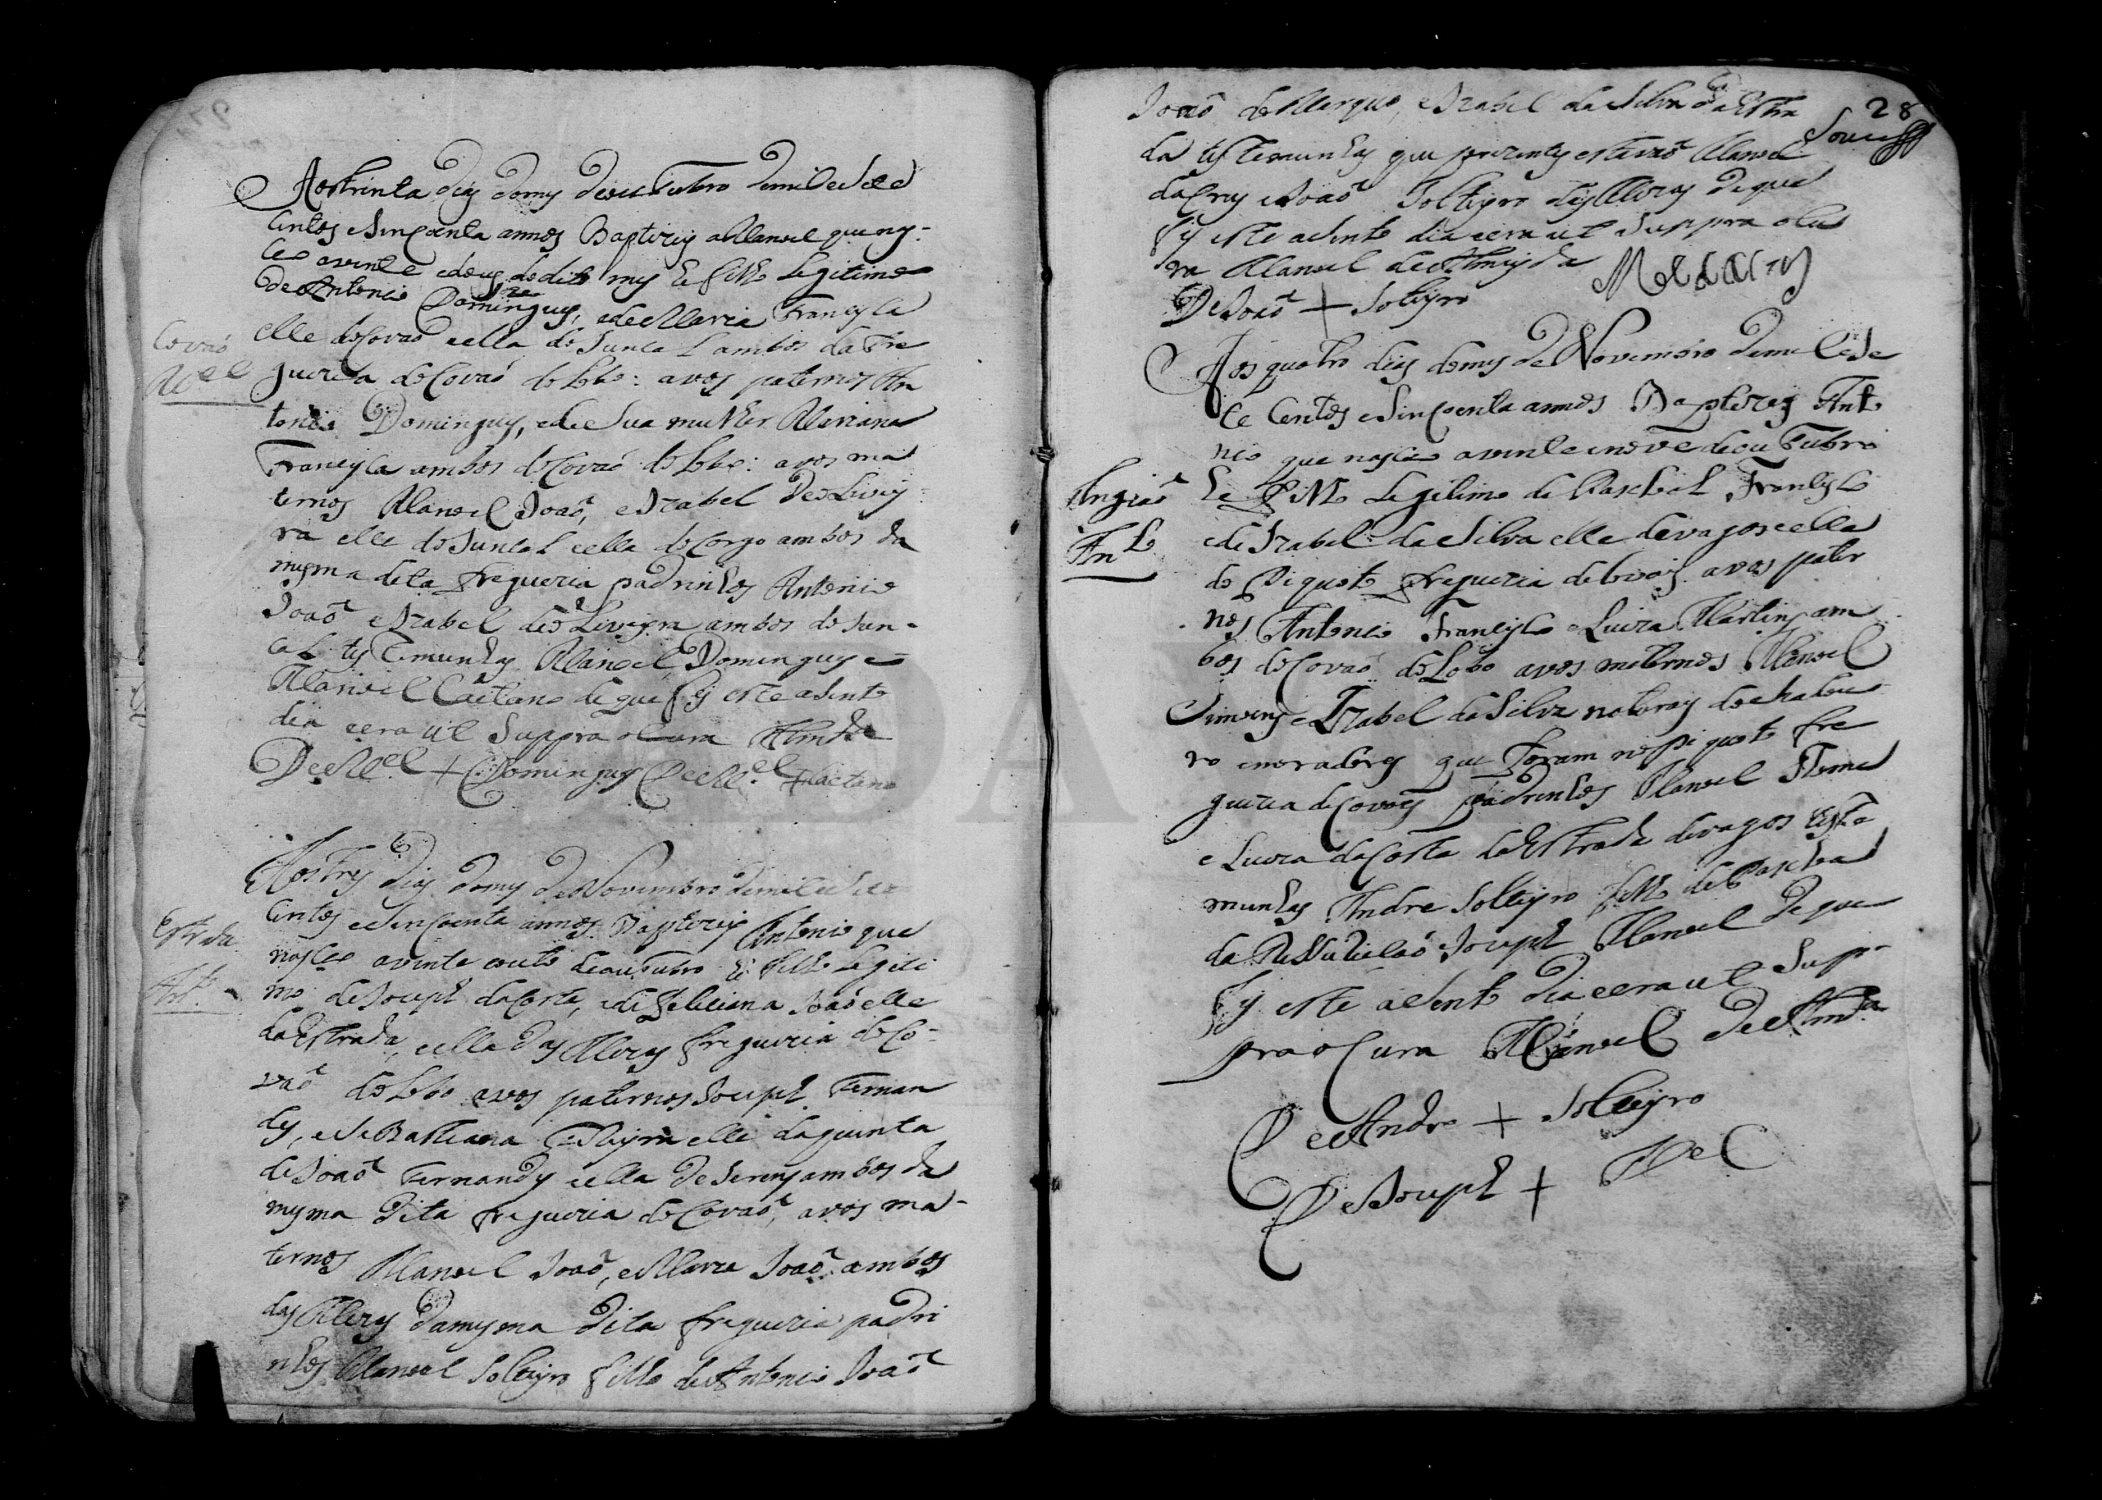 Aos trinta dias do mes de outubro de mil e sete
centos e sincoenta annos Baptizei a Manoel que nas-
ceo a vinte e dous do dito mes he filho legitimo
de Antonio Domingues, e de Maria Francisca
elle do Covaõ e ella do Juncal ambos da fre
Covaõ
Mel
guezia do Covaõ do Lobo: avos paternos An
tonio Domingues, e de sua mulher Mariana
Francisca ambos do Covaõ do Lobo: avos ma
ternos Manoel Joaõ, e Izabel de oLivei
ra elle do Juncal e ella do Corgo ambos da
mesma dita freguezia padrinhos Antonio
Joaõ e Izabel de oLiveyra ambos do Jun-
cal testemunhas Manoel Domingues e
Manoel Caetano de que fiz este asento
dia e era ut suppra o Cura Almda
De Mel + Domingues De Mel + Caetano
Aos tres dias do mes de Novembro de mil e sete
centos e sincoenta annos Baptizei Antonio que
Estrada
nasceo a vinte e outo de outubro he filho legiti
Anto
mo de Joseph da Costa, e de Feliciana Joaõ elle
da Estrada, e ella das Mezas freguezia do Co-
vaõ do Lobo avos paternos Joseph Fernan
des, e Sebastiana elle da quinta
de Joaõ Fernandes e ella de ambos da
mesma dita freguezia do Covaõ, avos ma-
ternos Manoel Joaõ, e Maria Joaõ ambos
das Mezas da mesma dita freguezia padri
nhos Manoel solteyro filho de Antonio Joaõ
28
Joaõ de Marques, e Izabel da Silva da Estra
da testemunhas que prezentes estavaõ Manoel
da Cruz e Joaõ solteyro das Mezas de que
fiz este asento dia e era ut suppra o Cu
ra Manoel de Almeyda
De Joaõ + solteyro
Aos quatro dias do mes de Novembro de mil e se
te centos e sincoenta annos Baptizei Anto
nio que nasceo a vinte e nove de outubro
he filho legitimo de Paschoal Francisco
Anto
e de Izabel da Silva elle de vagos e ella
do freguezia de Covoes avos pater
nos Antonio Francisco e Luiza Martins am
bos do Covaõ do Lobo avos maternos Manoel
Simoens e Izabel da Silva naturaes do
ro e moradores que foram no fre
guezia de Covoes padrinhos Manoel Thome
e Luiza da Costa da Estrada de vagos teste
munhas Andre solteyro filho de Paschoal
da e Joseph Manoel de que
fiz este asento dia e era ut sup-
pra o Cura Manoel de Almda
De Andre + solteyro
De Joseph + Mel